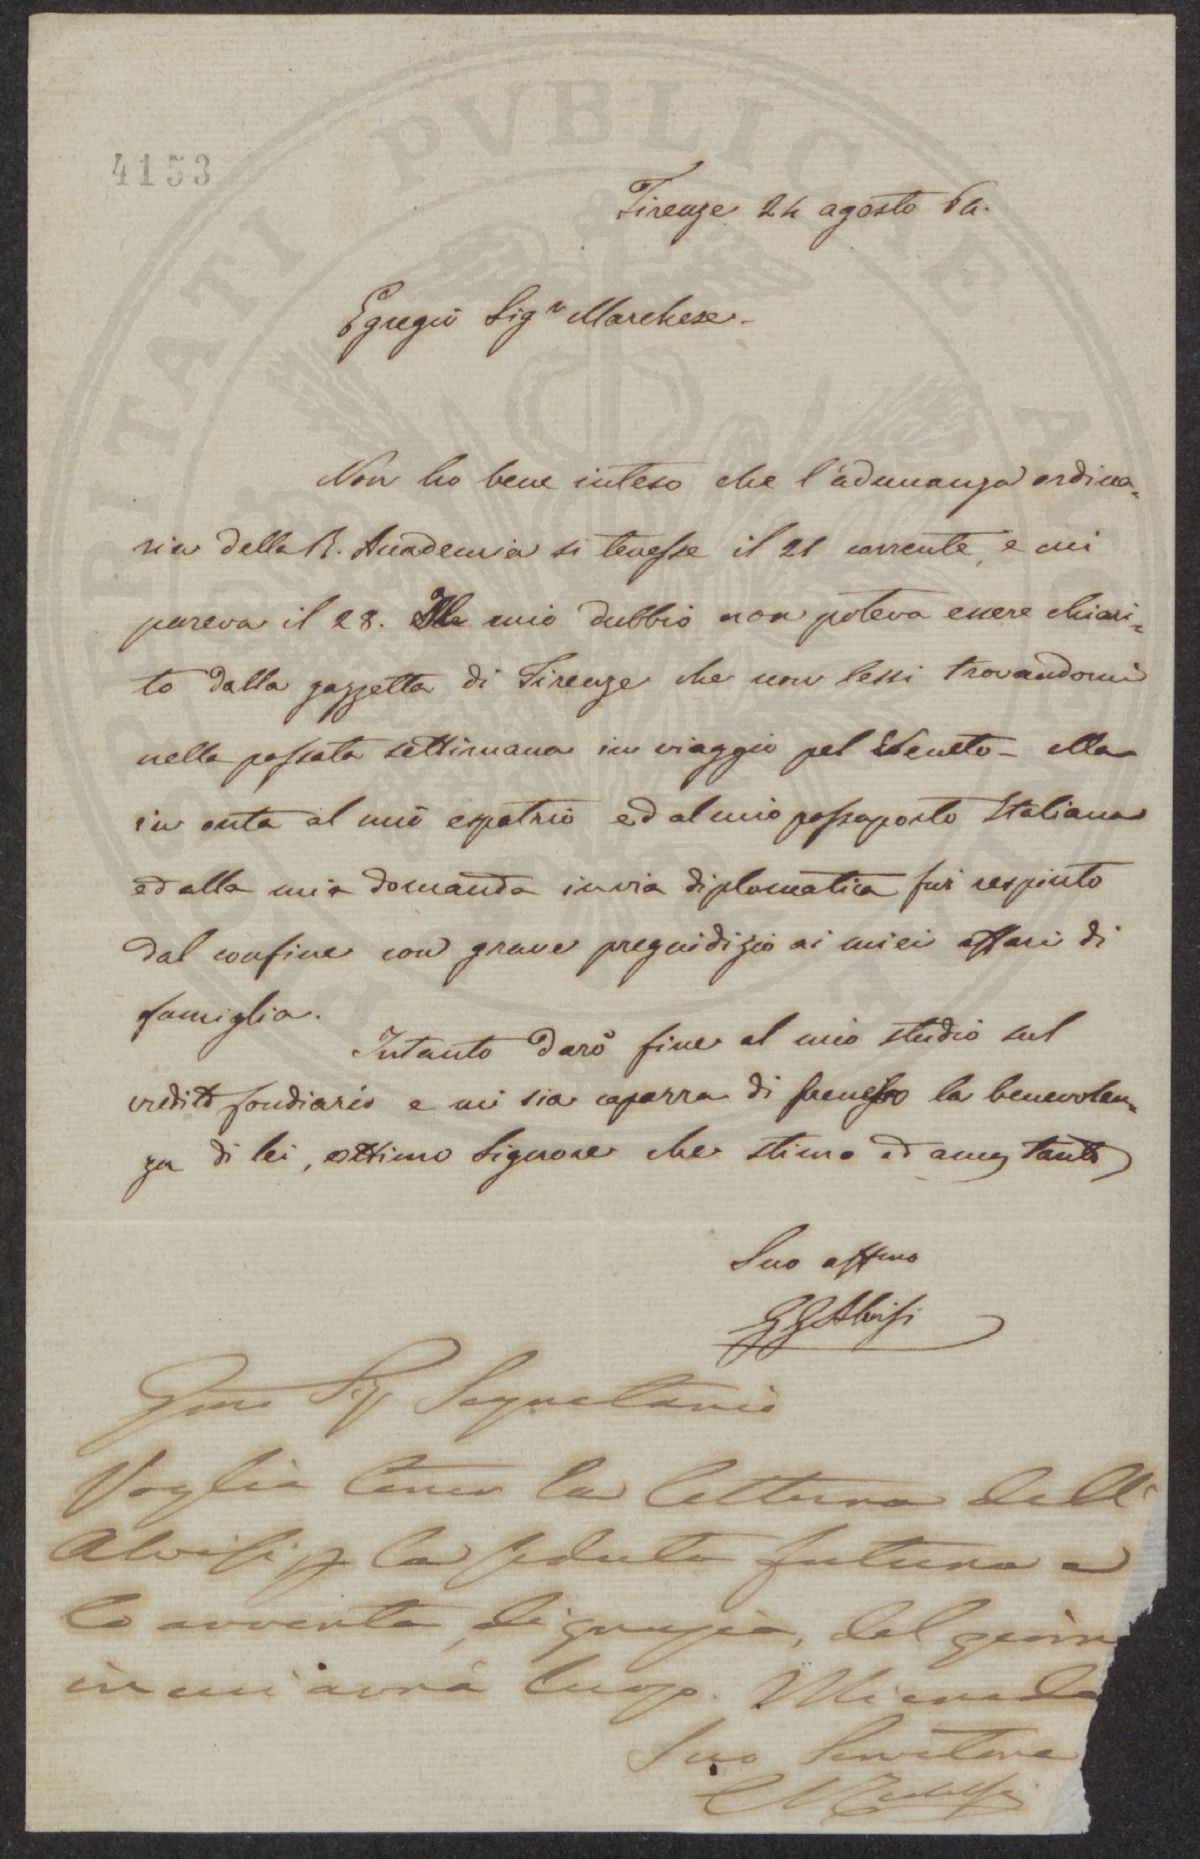 4153
Firenze 24 agosto 64.
Egregio Sigr Marchese.
Non ho bene inteso che l'adunanza ordina=
ria della R. Accademia si tenesse il 21 corrente, e mi
pareva il 28. Il mio dubbio non poteva essere chiari=
to dalla gazzetta di Firenze che non lessi trovandomi
nella passata settimana in viaggio pel Veneto - Ma
in onta al mio espatrio ed al mio passaporto Italiano
ed alla mia domanda in via diplomatica fui respinto
dal confine con grave pregiudizio ai miei affari di
famiglia.
Intanto darò fine al mio studio sul
credito fondiario e mi sia caparra di successo la benevolen=
za di lei, ottimo Signore che stimo ed amo tanto
Suo affmo
G G Alvisi
Sig Segretario
Voglia tener la lettura dell'
Alvisi p la seduta futura e
lo avverta, di grazia, del giorn
in cui avrà luogo. Mi creda
Suo Servitore